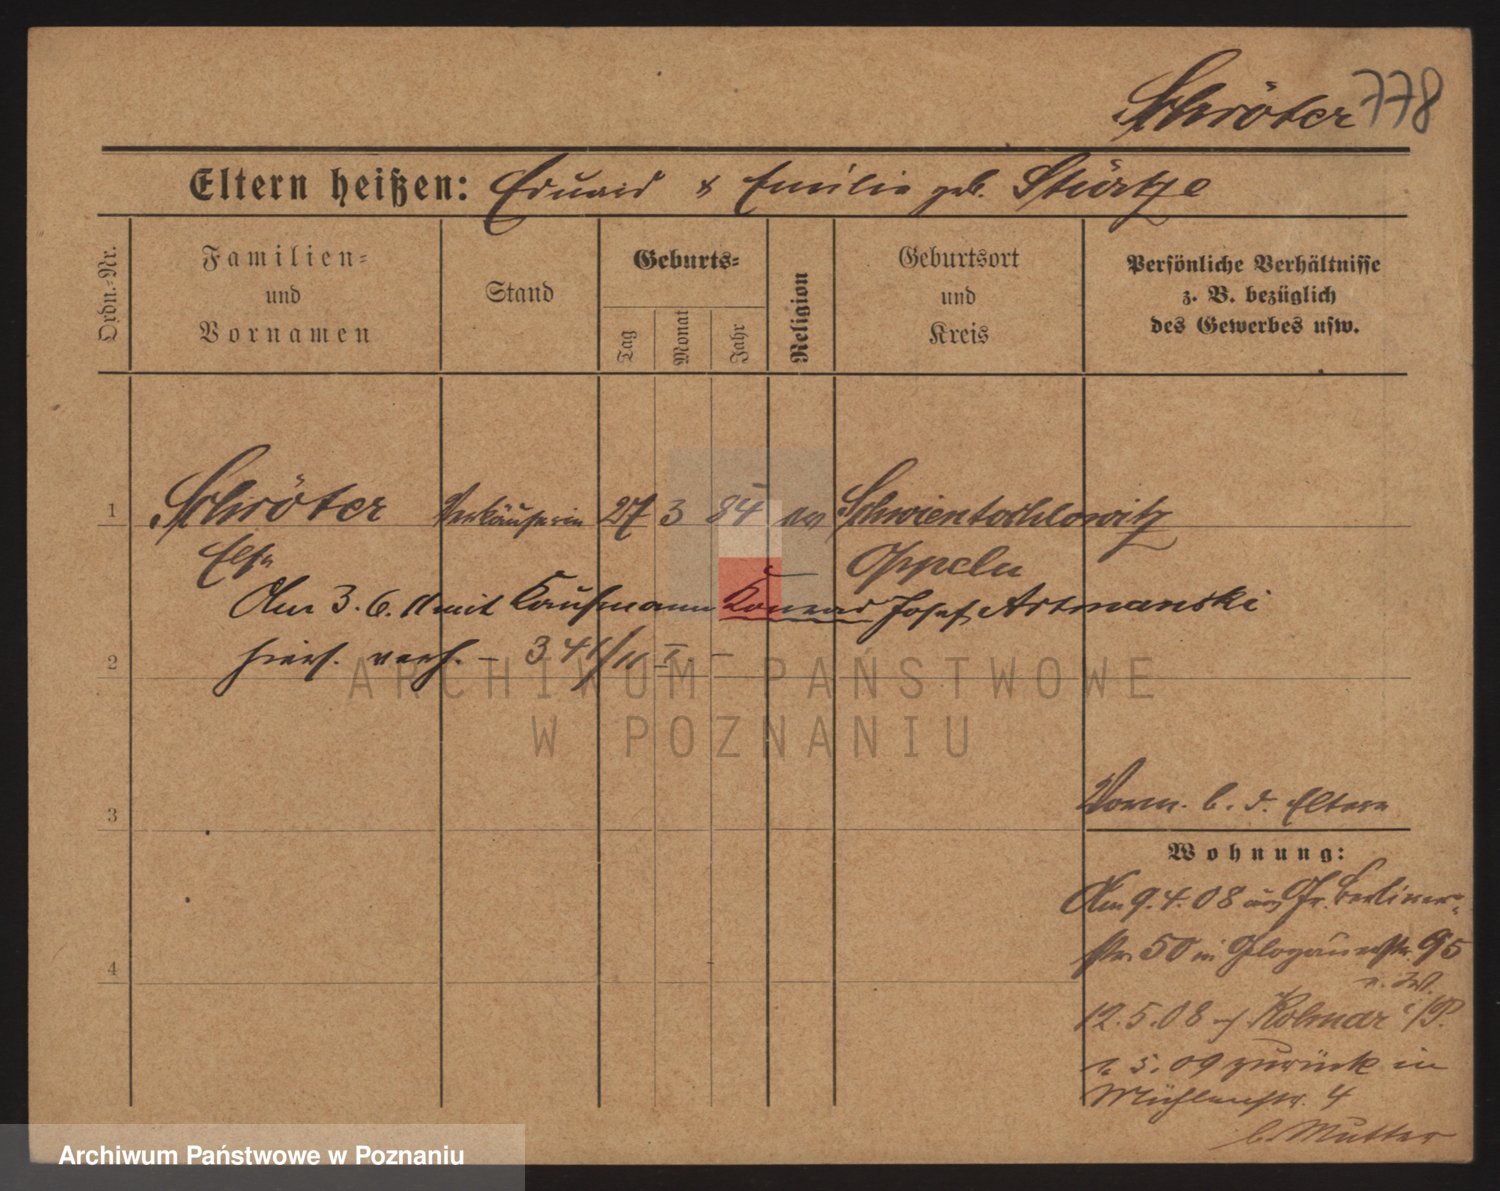 Schröter 778
Eltern heißen: Eduard & Emilie geb. Stürtze
Ordn.-Nr.
Familien-
und
Vornamen
Stand
Geburts-
Tag
Monat
Jahr
Religion
Geburtsort
und
Kreis
Persönliche Verhältnisse
z. B. bezüglich
des Gewerbes usw.
1 Schröter Verkäuferin 27 3 84 ev Schwientochlowitz
Else Oppeln
Am 3. 6. 11 mit Kaufmann Konrad Josef Artmanski
2 hiers. verh. – 341/11 II –
ARCHIWUM PAŃSTWOWE
W POZNANIU
3
Vorm. b. d. Eltern
Wohnung:
Am 9. 4. 08 aus Gr. Berliner-
4 str. 50 in Glogauerstr. 95
12. 5. 08 Kolmar i/P.
5. 09 zurück in
Mühlenstr. 4
b. Mutter
Archiwum Państwowe w Poznaniu